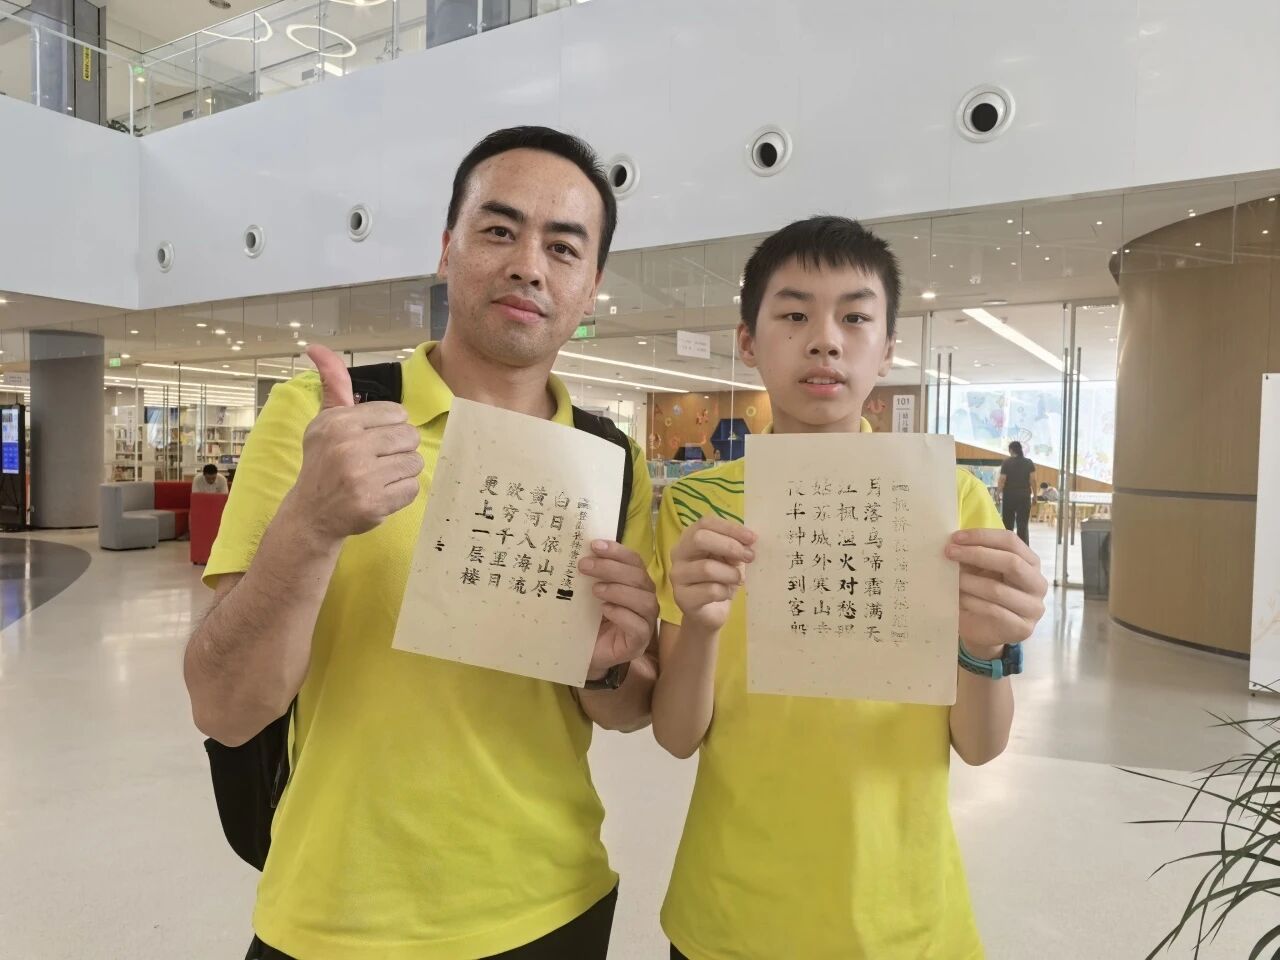 登鹳雀楼唐王之涣
白日依山尽
黄河入海流
欲穷千里目
更上一层楼
枫桥夜泊
月落乌啼霜满天
江枫渔火对愁眠
姑苏城外寒山寺
夜半钟声到客船
101